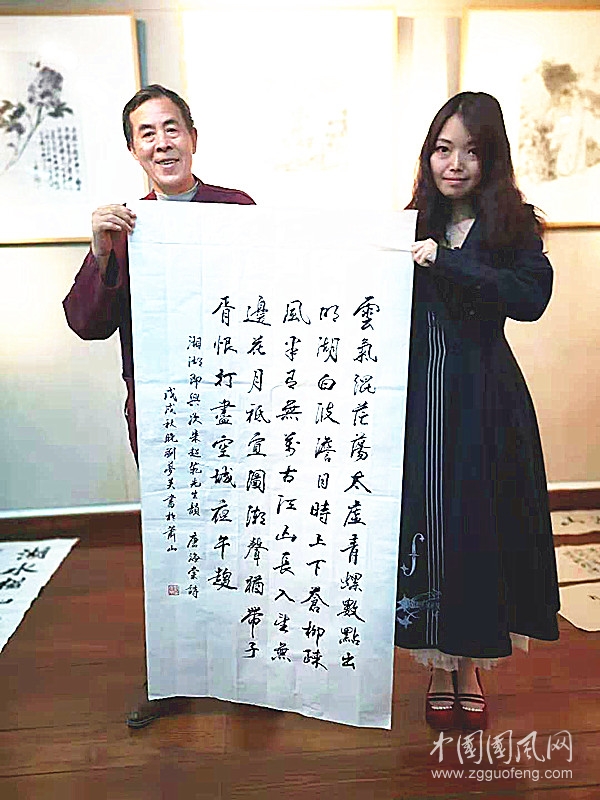 雲氣混茫蕩太虛青螺數點出
明湖白波澹日時上下蒼柳疎
風半有無萬古江山長入望無
邊花月祗宜圖潮聲猶帶子
胥恨打盡空城夜午
湘湖即興次朱超範先生韻 唐海棠詩
戊戌秋晚劉夢芙書於蕭山
中国國风网
www.zgguofeng.com